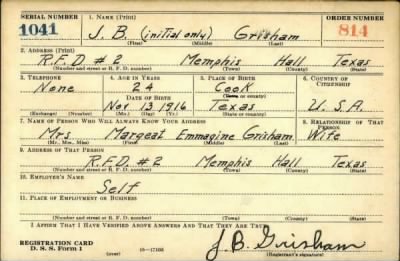 SERIAL NUMBER 1. NAME (Print) ORDER NUMBER
1041 J. B. (initial only) Grisham 814
(First) (Middle) (Last)
2. ADDRESS (Print)
R.F.D. # 2 Memphis Hall Texas
(Number and street or R. F. D. number) (Town) (County) (State)
3. TELEPHONE 4. AGE IN YEARS 5. PLACE OF BIRTH 6. COUNTRY OF CITIZENSHIP
None 24 Cook
DATE OF BIRTH (Town or county)
Nov 13 1916 Texas U.S.A.
(Exchange) (Number) (Mo.) (Day) (Yr.) (State or country)
7. NAME OF PERSON WHO WILL ALWAYS KNOW YOUR ADDRESS 8. RELATIONSHIP OF THAT PERSON
Mrs. Margeat Emmagine Grisham Wife
(Mr., Mrs., Miss) (First) (Middle) (Last)
9. ADDRESS OF THAT PERSON
R.F.D. #2 Memphis Hall Texas
(Number and street or R. F. D. number) (Town) (County) (State)
10. EMPLOYER'S NAME
Self
11. PLACE OF EMPLOYMENT OR BUSINESS
(Number and street or R. F. D. number) (Town) (County) (State)
I AFFIRM THAT I HAVE VERIFIED ABOVE ANSWERS AND THAT THEY ARE TRUE.
REGISTRATION CARD J. B. Grisham
D. S. S. Form 1 (over) (Registrant's signature)